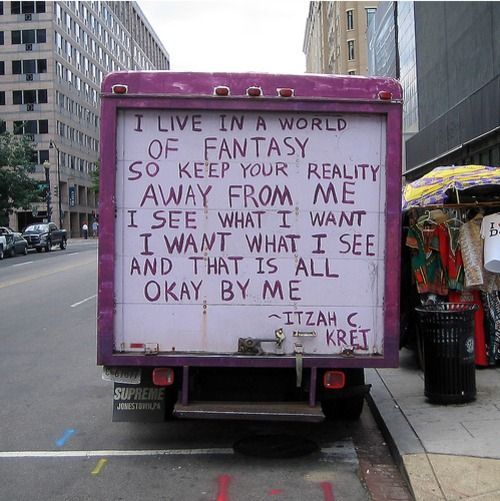 I LIVE IN A WORLD
OF FANTASY
SO KEEP YOUR REALITY
AWAY FROM ME
I SEE WHAT I WANT
I WANT WHAT I SEE
AND THAT IS ALL
OKAY BY ME
~ITZAH C.
KRET
SUPREME
JONESTOWN, PA